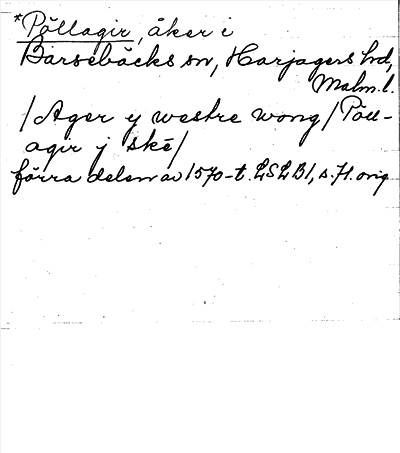 *Pöllagir, åker i
Barsebäcks sn, Harjagers hd,
Malm.l.
/Ager y westre wong/ Pöll-
agir j skē/
förra delen av 1570-t. LSLB1, s.71. orig